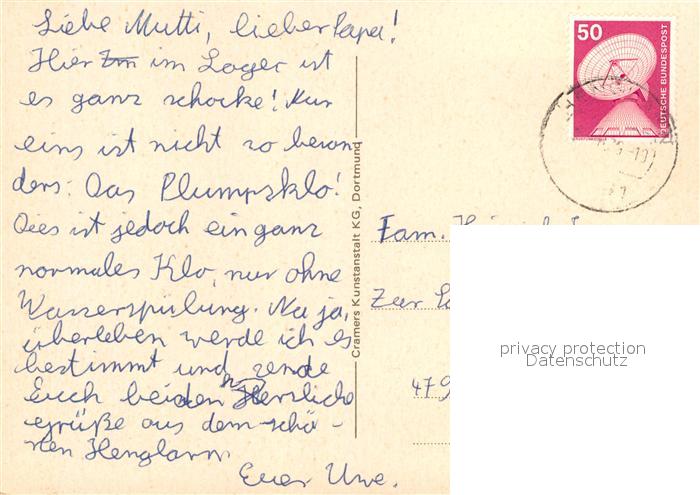 Liebe Mutti, lieber Papa!
Hier Im im Lager ist
es ganz schocke! Nur
eins ist nicht so beson
ders: Das Plumpsklo!
Dies ist jedoch ein ganz
normales Klo, nur ohne
Wasserspülung. Na ja,
überleben werde ich es
bestimmt und sende
Euch beiden herzliche
grüße aus dem schö-
nen Henglarn.
Euer Uwe.
Cramers Kunstanstalt KG, Dortmund
50
DEUTSCHE BUNDESPOST
Fam.
Zur
479
privacy protection
Datenschutz